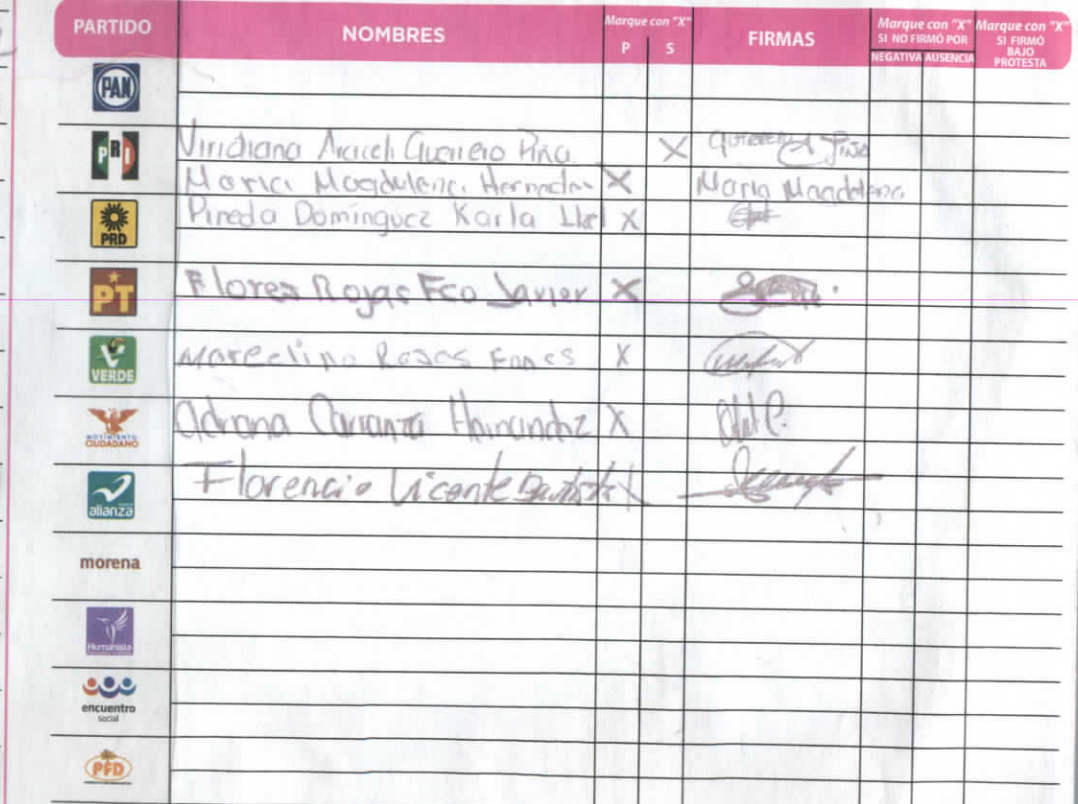 PARTIDO NOMBRES Marque con "X" P S FIRMAS Marque con "X" SI NO FIRMÓ POR NEGATIVA AUSENCIA Marque con "X" SI FIRMÓ BAJO PROTESTA
PAN
PRI Viridiana Araceli Guerrero Piña X
Maria Magdalena Hernadez X Maria Magdalena
PRD Pineda Domínguez Karla X
PT Flores Rojas Fco Javier X
VERDE Marcelino Rosas X
MOVIMIENTO CIUDADANO Adriana Carranza Hernandez X
alianza Florencio Vicente Bautista X
morena
Humanista
encuentro social
PFD